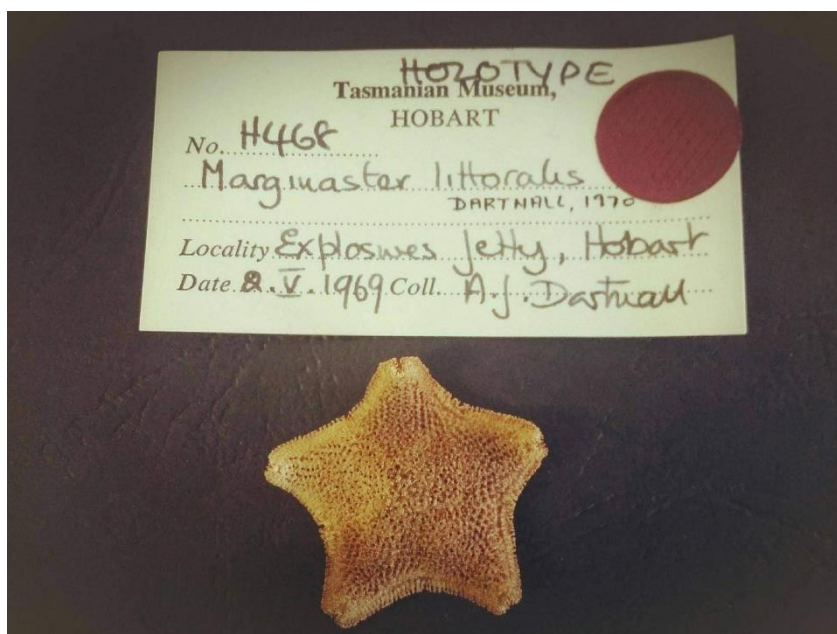 HOLOTYPE
Tasmanian Museum,
HOBART
No. H468
Marginaster littoralis
DARTNALL, 1970
Locality Explosives Jetty, Hobart
Date 2.V.1969 Coll. A.J. Dartnall